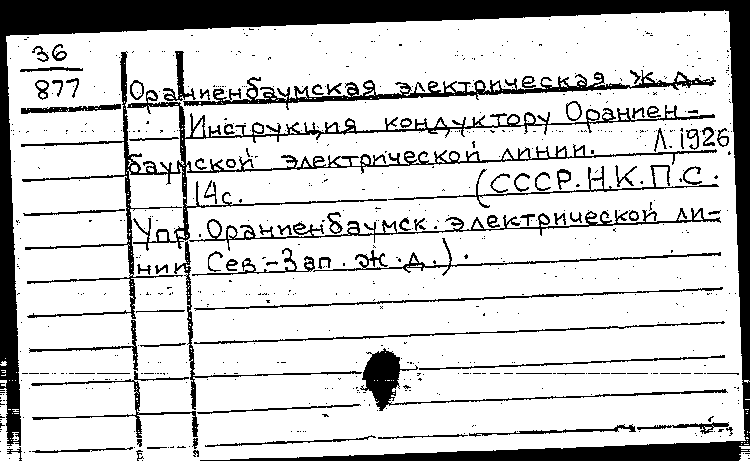 36
877
Ораниенбаумская электрическая ж.д.
Инструкция кондуктору Ораниен-
баумской электрической линии. Л. 1926
14с. (СССР.Н.К.П.С.
Упр. Ораниенбаумск. электрической ли-
нии Сев.-Зап. ж.д.).